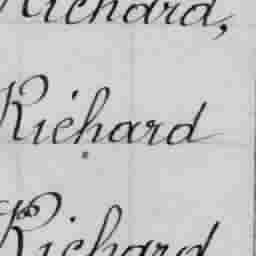 Richard,
Richard
Richard